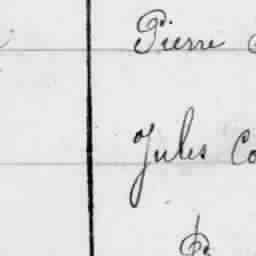 Pierre
Jules Co